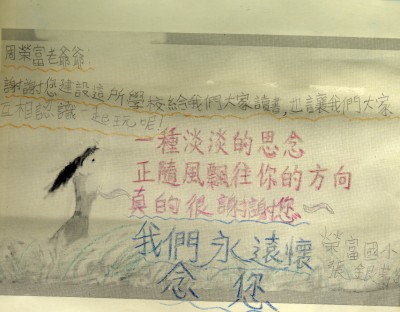 周榮富老爺爺:
謝謝您建設這所學校給我們大家讀書,也讓我們大家
互相認識一起玩呢!
一種淡淡的思念
正隨風飄往你的方向
真的很謝謝您
我們永遠懷
念您
榮富國小
張銀